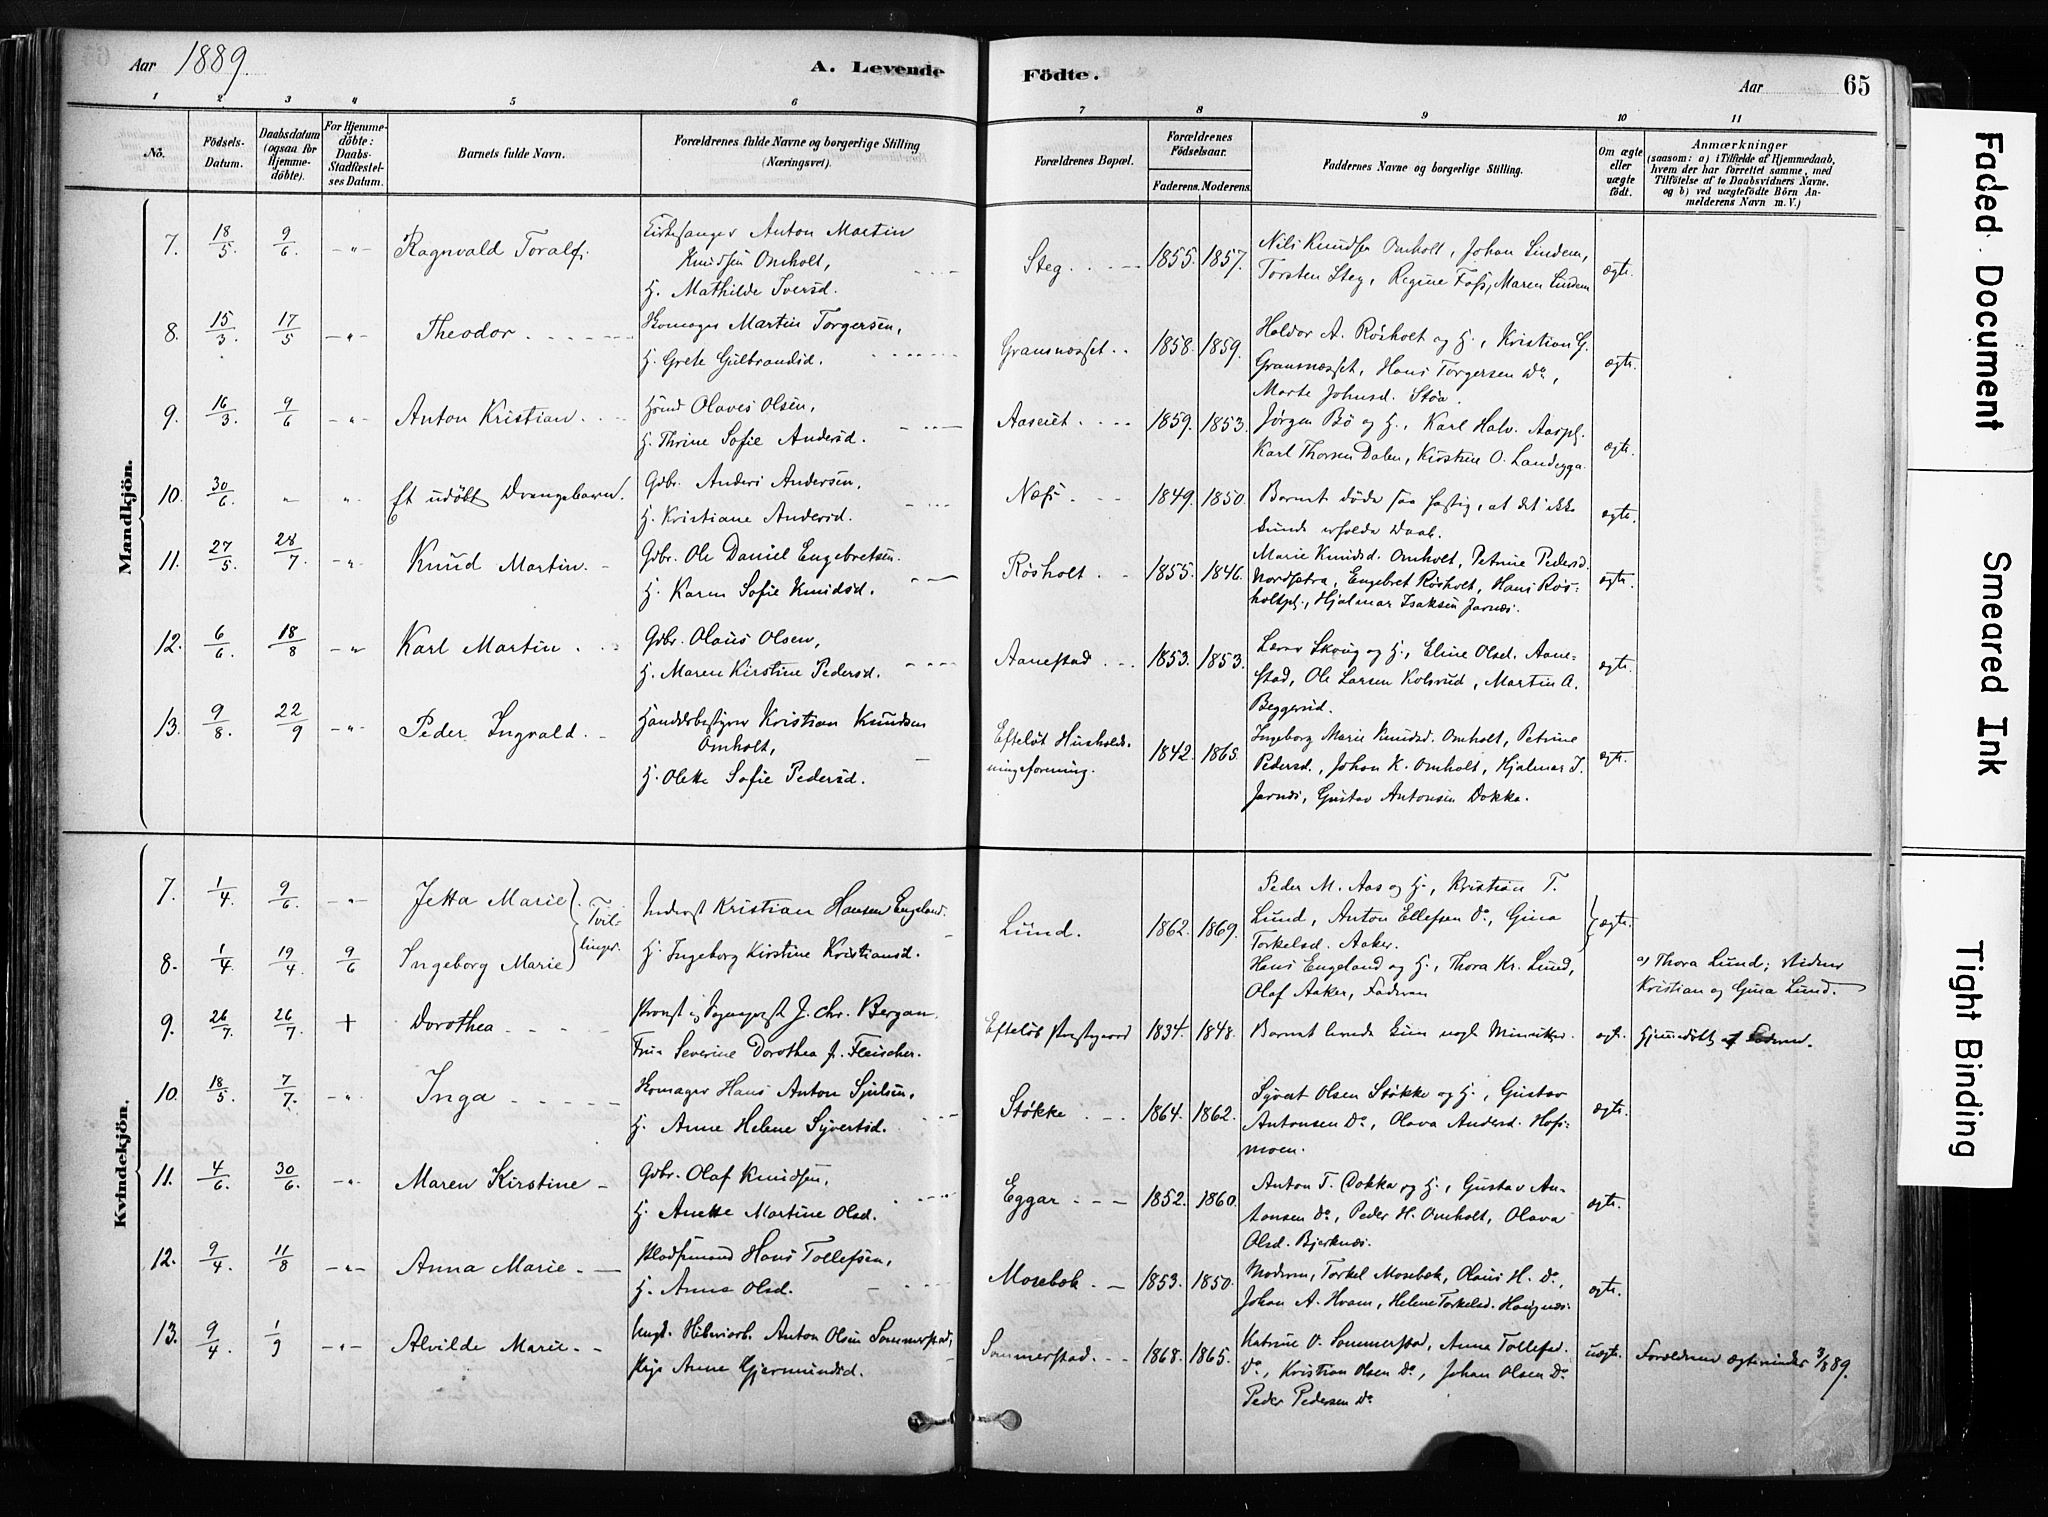 Aar 1889. A. Levende Födte. Aar 65
1 2 3 4 5 6 7 8 9 10 11
No.
Födsels-Datum.
Daabsdatum (ogsaa for Hjemme-döbte).
For Hjemme-döbte: Daabs-Stadfæstel-ses Datum.
Barnets fulde Navn.
Forældrenes fulde Navne og borgerlige Stilling
(Næringsvei).
Forældrenes Bopæl.
Forældrenes Födselsaar.
Faderens. Moderens.
Faddernes Navne og borgerlige Stilling.
Om ægte eller uægte födt.
Anmærkninger
(saasom: a) i Tilfælde af Hjemmedaab,
hvem der har forrettet samme, med
Tilföielse af to Daabsvidners Navne,
og b) ved uægtefödte Börn An-
melderens Navn m. V.)
Mandkjön.
7. 18/5 9/6 -"- Ragnvald Toralf. Kirkesanger Anton Martin
Knudsen Omholt,
H. Mathilde Iversd.
Steg. 1855. 1857.
Nils Knudsen Omholt, Johan Lindem,
Torsten Steg, Regine Foss, Maren Lindem
ægte.
8. 15/3 17/5 -"- Theodor Skomager Martin Torgersen,
H. Grete Gulbrandsd.
Gransnæsset 1858. 1859.
Haldor A. Rösholt og H., Kristian G.
Gransnæsset, Hans Torgersen Do,
Marte Johnsd. Stöa.
ægte.
9. 16/3 9/6 -"- Anton Kristian Olaves Olsen,
H. Thrine Sofie Andersd.
Aaseiet 1859. 1853.
Jörgen Bö og H., Karl Halv. Aaspl.
Karl Thorsen Dalen, Kirstine O. Landeygga
ægte.
10. 30/6 " " Et udöbt Drengebarn. Gdbr. Anders Andersen,
H. Kristiane Andersd.
Næss. 1849. 1850.
Barnet döde saa hastig, at det ikke
kunde erholde Daab.
ægte.
11. 27/5 28/7 -"- Knud Martin. Gdbr. Ole Daniel Engebretsen.
H. Karen Sofie Knudsd.
Rösholt 1855. 1846.
Marie Knudsd. Omholt, Petrine Pedersd.
Nordsetra, Engebret Rösholt, Hans Rös-
holtpl., Hjalmar Isaksen Jarnæs.
ægte.
12. 6/6 18/8 -"- Karl Martin Gdbr. Olaus Olsen,
H. Maren Kirstine Pedersd.
Aanestad 1853. 1853.
Lærer Skoug og H., Eline Olsd. Aane-
stad, Ole Larsen Kolsrud, Martin A.
Beggerud.
ægte.
13. 9/8 22/9 -"- Peder Ingvald Handelsbestyrer Kristian Knudsen
Omholt,
H. Olette Sofie Pedersd.
Efteløt Hushold-
ningsforening. 1842. 1865.
Ingeborg Marie Knudsd. Omholt, Petrine
Pedersd., Johan K. Omholt, Hjalmar I.
Jarnæs, Gustav Antonsen Dokka.
ægte.
Kvindekjön.
7. 1/4 9/6 -"- Jetta Marie Tvil-
linger. Inderst Kristian Hansen Engeland.
8. 1/4 19/4 9/6 Ingeborg Marie H. Ingeborg Kirstine Kristiansd.
Lund. 1862. 1869.
Peder M. Aas og H., Kristian T.
Lund, Anton Ellefsen Do, Gina
Torkelsd. Aaker.
Hans Engeland og H., Thora Kr. Lund,
Olaf Aaker, Faderen
ægte.
a) Thora Lund; Vidner
Kristian og Gina Lund.
9. 26/7 26/7 + Dorothea Provst og Sognepræst J. Chr. Bergan.
Frue Severine Dorothea J. Fleischer.
Efteløt Præstegaard 1834. 1848.
Barnet levede kun nogle Minutter.
ægte. Hjemmedöbt af Faderen.
10. 18/5 7/7 -"- Inga Skomager Hans Anton Sjulsen,
H. Anne Helene Syvertsd.
Støkke 1864. 1862.
Syvert Olsen Støkke og H., Gustav
Antonsen Do, Olava Andersd. Hofs-
moen.
ægte.
11. 4/6 30/6 -"- Maren Kirstine Gdbr. Olaf Knudsen,
H. Anette Martine Olsd.
Eggar 1852. 1860.
Anton T. Dokka og H., Gustav An-
tonsen Do, Peder H. Omholt, Olava
Olsd. Bjerknæs.
ægte.
12. 9/4 11/8 -"- Anna Marie Pladsmand Hans Tollefsen,
H. Anna Olsd.
Mosebæk 1853. 1850.
Moderen, Torkel Mosebæk, Olaus H. Do,
Johan A. Hvam, Helene Torkelsd. Haugnæs.
ægte.
13. 9/4 1/9 -"- Alvilde Marie Ungk. Anton Olsen Sommerstad,
Pige Anne Gjermundsd.
Sommerstad 1868. 1865.
Katrine O. Sommerstad, Anne Tollefsd.
Do, Kristian Olsen Do, Johan Olsen Do
Peder Pedersen Do
uægte. Forældrene ægteviedes 3/8 89.
Faded Document
Smeared Ink
Tight Binding